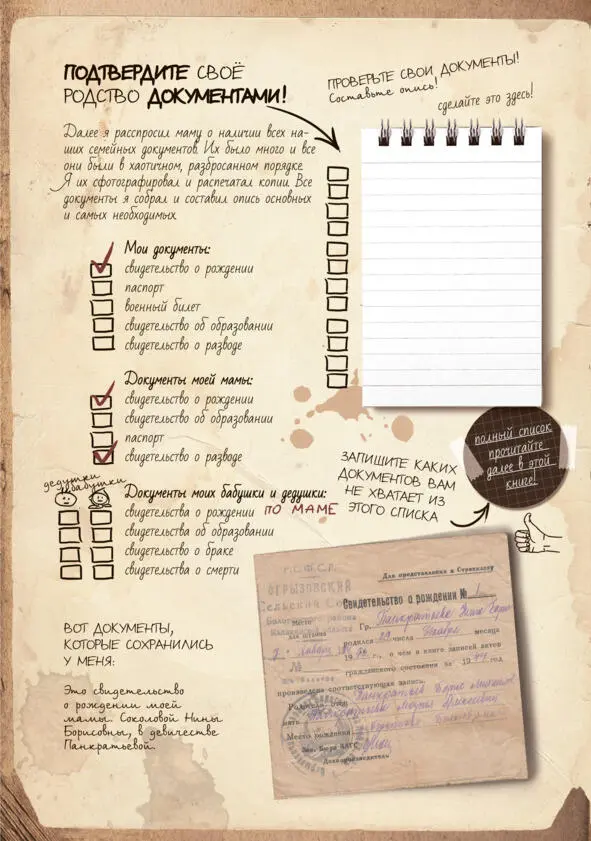 ПОДТВЕРДИТЕ СВОЁ
РОДСТВО ДОКУМЕНТАМИ!
ПРОВЕРЬТЕ СВОИ ДОКУМЕНТЫ!
Составьте опись!
сделайте это здесь!
Далее я расспросил маму о наличии всех на-
ших семейных документов. Их было много и все
они были в хаотичном, разбросанном порядке.
Я их сфотографировал и распечатал копии. Все
документы я собрал и составил опись основных
и самых необходимых.
Мои документы:
свидетельство о рождении
паспорт
военный билет
свидетельство об образовании
свидетельство о разводе
Документы моей мамы:
свидетельство о рождении
свидетельство об образовании
паспорт
свидетельство о разводе
полный список
прочитайте
далее в этой
книге!
ЗАПИШИТЕ КАКИХ
ДОКУМЕНТОВ ВАМ
НЕ ХВАТАЕТ ИЗ
ЭТОГО СПИСКА
дедушки
бабушки
Документы моих бабушки и дедушки:
свидетельства о рождении ПО МАМЕ
свидетельства об образовании
свидетельство о браке
свидетельства о смерти
ВОТ ДОКУМЕНТЫ,
КОТОРЫЕ СОХРАНИЛИСЬ
У МЕНЯ:
Это свидетельство
о рождении моей
мамы. Соколовой Нины
Борисовны, в девичестве
Панкратьевой.
Р.С.Ф.С.Р.
Для представления в Страхкассу
ОГРЫЗОВСКИЙ
Сельский Со
Свидетельство о рождении № 1
района
Место
для штампа
Гр.
родился 29 числа декабря месяца
19 г., о чем в книге записей актов
№
гражданского состояния за 1944 год
произведена соответствующая запись.
Родители: отец Панкратьев Борис
мать
Место рождения
Зав. Бюро ЗАГС
Делопроизводитель